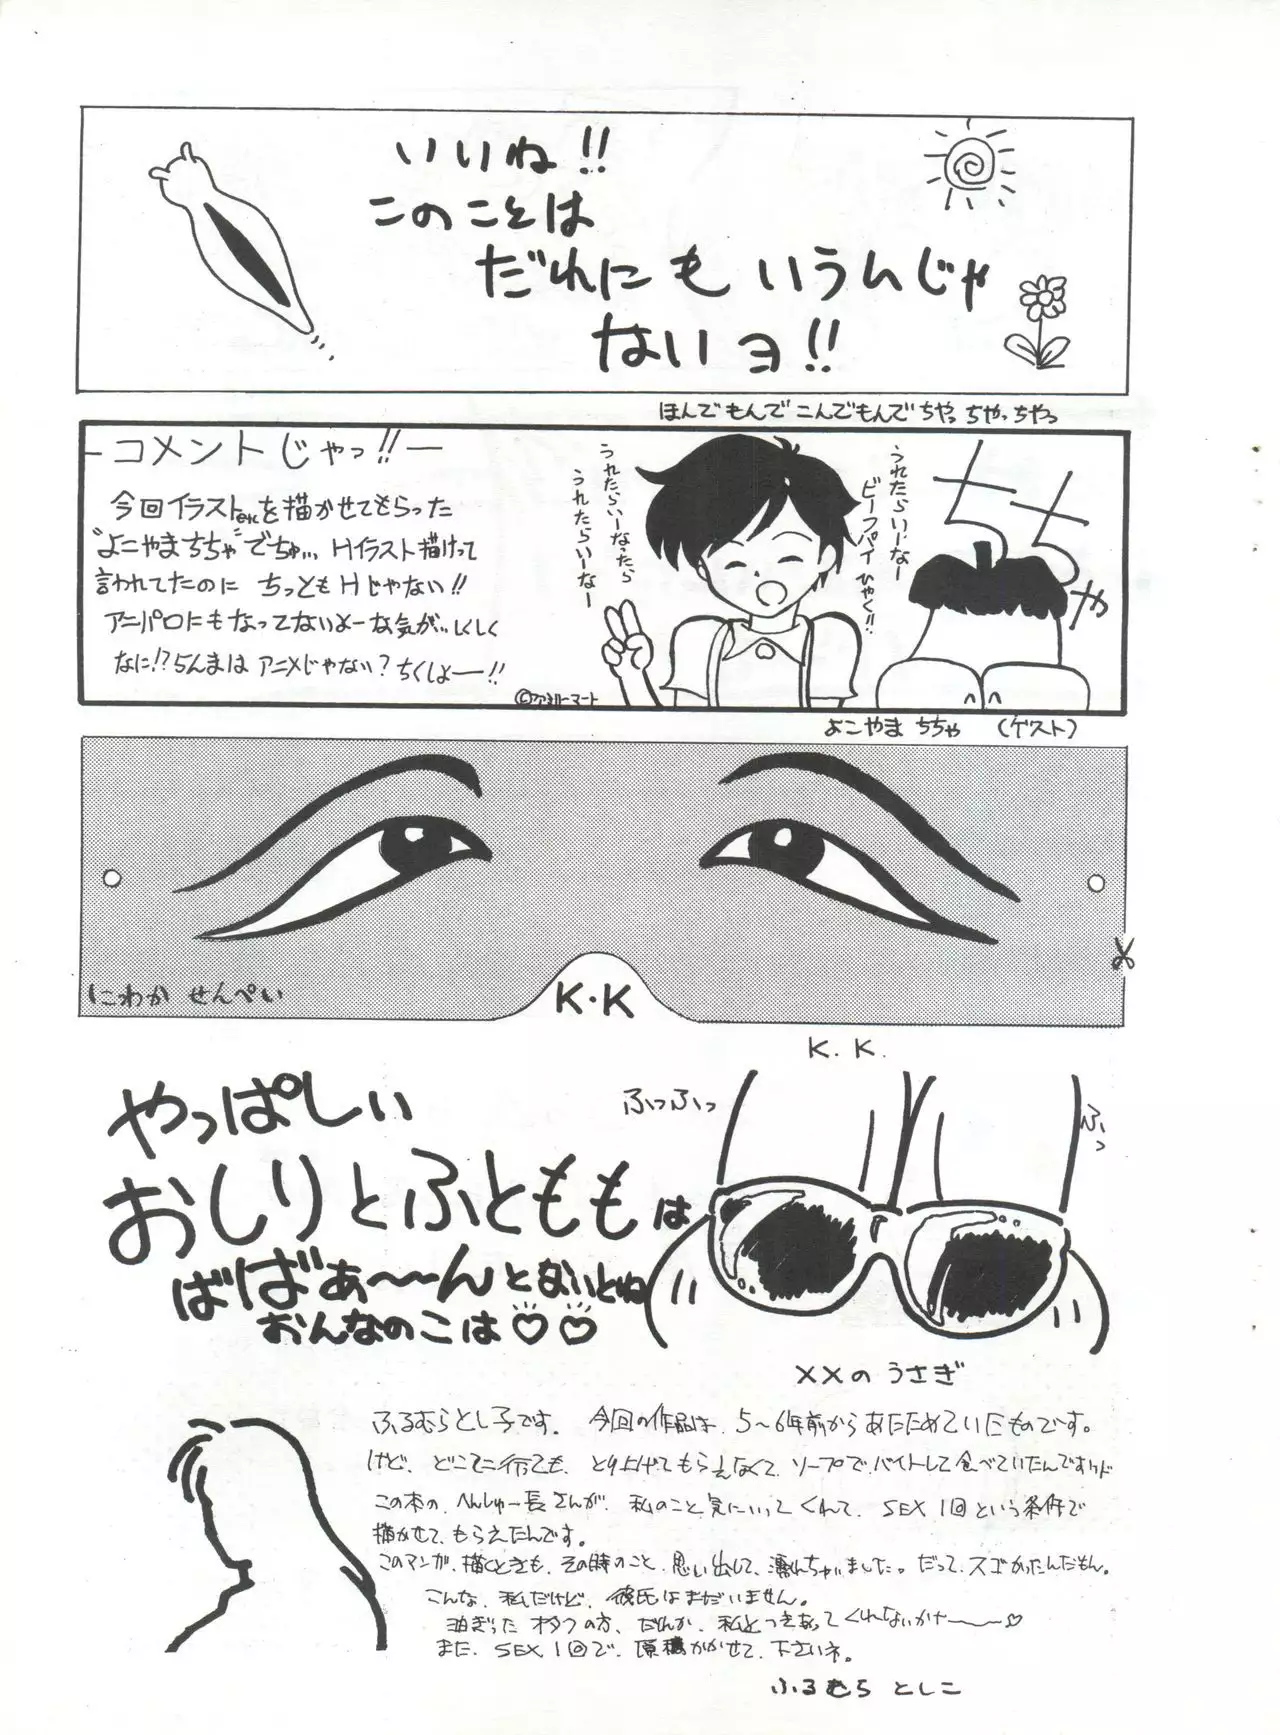 いいね!!
このことは
だれにもいうんじゃ
ないヨ!!
ほんでもんでこんでもんでちゃっちゃっちゃっ
コメントじゃっ!!
今回イラストetcを描かせてもらった
"よこやまちちゃ"でちゅ... Hイラスト描けって
言われてたのに ちっともHじゃない!!
アニパロにもなってないよーな気が..しくしく
なに!?らんまは アニメじゃない? ちくしょー!!
うれたらいーなったら
うれたらいーなー
うれたらいーなー
ビーフパイひゃく!!
ちちゃ
©ファミリーマート
よこやま ちちゃ (ゲスト)
にわか せんぺい
K・K
K.K.
やっぱしぃ
おしりとふとももは
ばばばぁ〜〜んとないとね
おんなのこは♡♡
ふっふっ
ふっ
××の うさぎ
ふるむらとし子です。 今回の作品は、5〜6年前からあたためていたものです。
けど、どこに行っても、とり上げてもらえなくて、ソープで、バイトして食べていたんですけど
この本の、へんしゅー長さんが、私のこと気にいってくれて、SEX1回という条件で
描かせて、もらえたんです。
このマンガ、描くときも、その時のこと、思い出して、濡れちゃいました。だって、スゴかったんだもん。
こんな、私だけど、彼氏はまだいません。
オタクの方、だれか、私とつきあってくれないかナ〜〜♡
また、SEX1回で、原稿かかせて、下さいネ。
ふるむら としこ